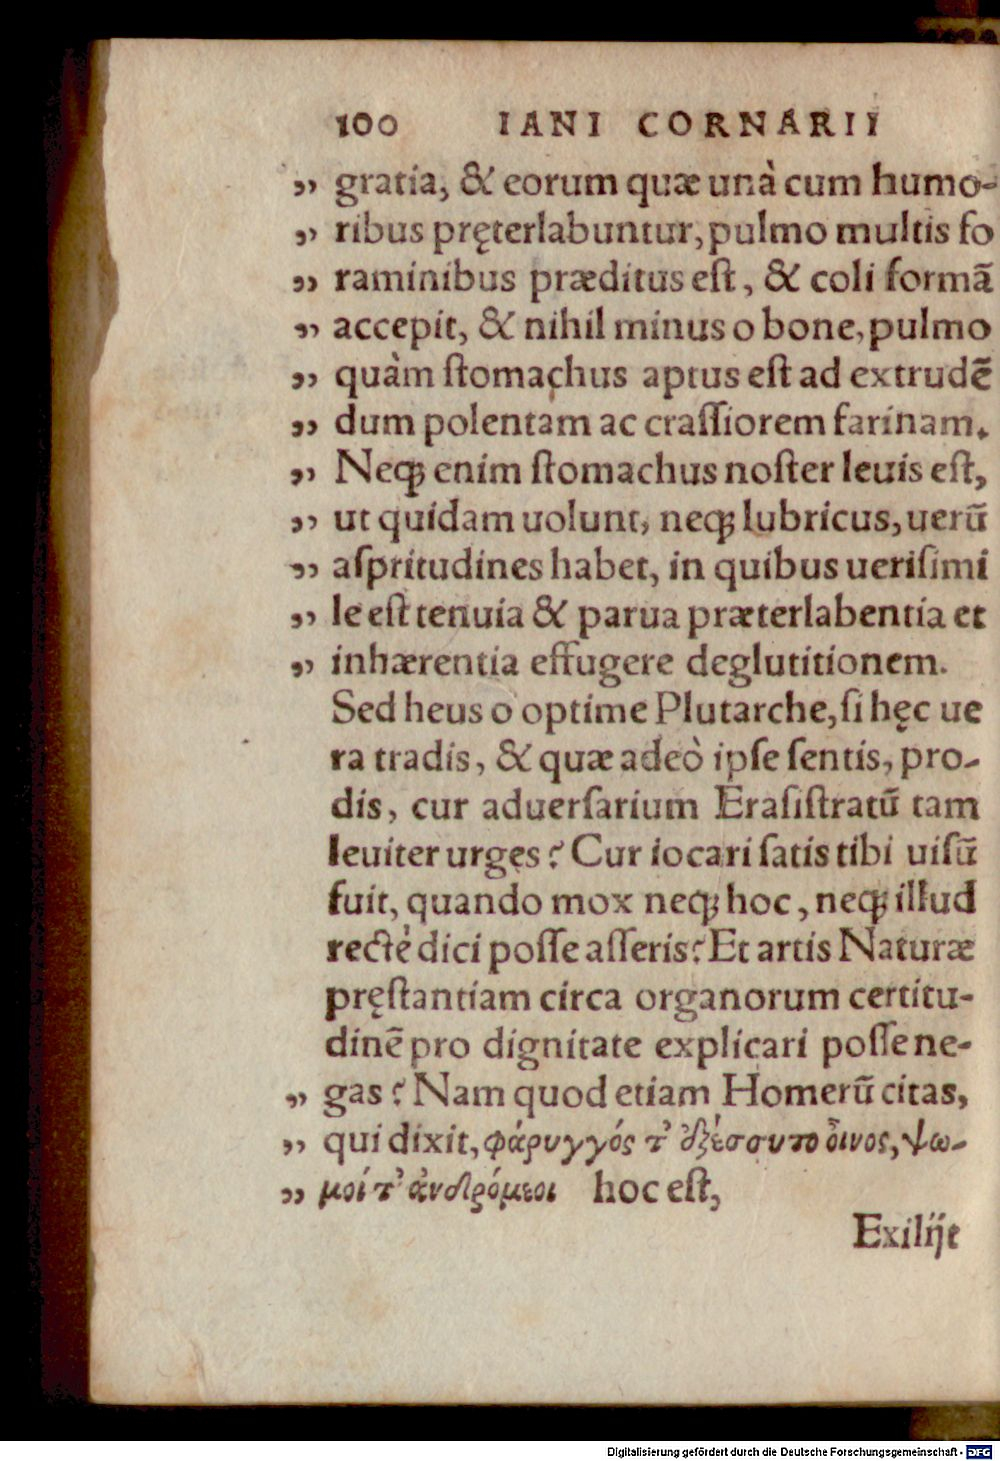 100 IANI CORNARII
„ gratia, & eorum quæ unà cum humo-
„ ribus pręterlabuntur, pulmo multis fo
„ raminibus præditus eſt, & coli formã
„ accepit, & nihil minus o bone, pulmo
„ quàm ſtomachus aptus eſt ad extrudẽ
„ dum polentam ac craſſiorem farinam.
„ Neqꝫ enim ſtomachus noſter leuis eſt,
„ ut quidam uolunt, neqꝫ lubricus, uerũ
„ aſpritudines habet, in quibus ueriſimi
„ le eſt tenuia & parua præterlabentia et
„ inhærentia effugere deglutitionem.
Sed heus o optime Plutarche, ſi hęc ue
ra tradis, & quæ adeò ipſe ſentis, pro-
dis, cur aduerſarium Eraſiſtratũ tam
leuiter urges? Cur iocari ſatis tibi uiſũ
fuit, quando mox neqꝫ hoc, neqꝫ illud
rectè dici poſſe aſſeris? Et artis Naturæ
pręſtantiam circa organorum certitu-
dinẽ pro dignitate explicari poſſe ne-
„ gas? Nam quod etiam Homerũ citas,
„ qui dixit, φάρυγγός τ' ἐξέσσυτο οἶνος, ψω-
„ μοί τ' ἀνδρόμεοι hoc eſt,
Exilijt
Digitalisierung gefördert durch die Deutsche Forschungsgemeinschaft - DFG